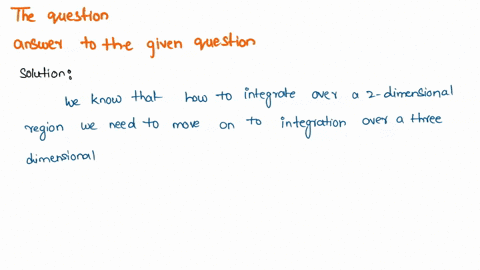 The question
answer to the given question
Solution:
We know that how to integrate over a 2-dimensional
region we need to move on to integration over a three
dimensional